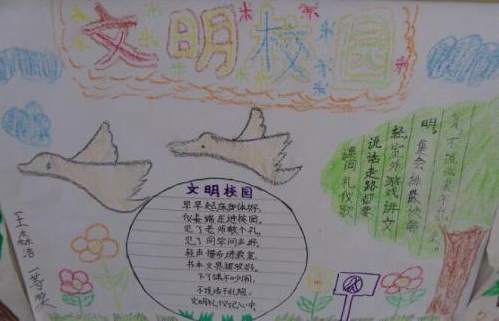 文明校园
文明校园
早早起床身体好,
仪表端庄进校园。
见了老师敬个礼,
见了同学问声好。
轻声慢步进教室,
书本文具摆放好。
下了课不吵闹,
文明礼仪记心中。
课间礼仪歌
说话走路都要
轻,室外游戏讲文
明。
一等奖